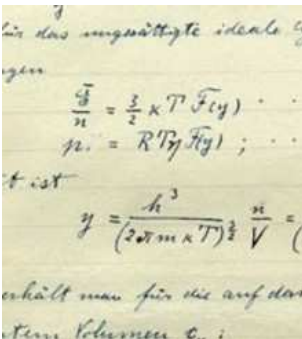 für das ungesättigte ideale G
gen
Ē/n = 3/2 κ T F(y) · ·
p = R T η F(y) ; · ·
t ist
y = h³/(2πmκT)^{3/2} n/V = (
erhält man für die auf das
Volumen